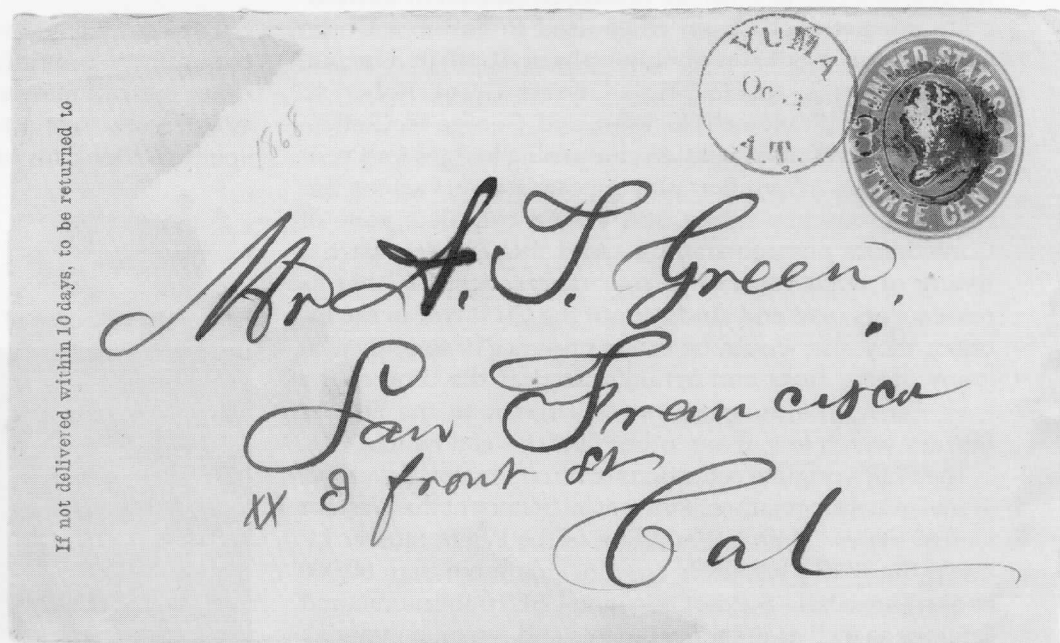 If not delivered within 10 days, to be returned to
1868
YUMA
Oc. 3
A.T.
UNITED STATES
THREE CENTS
Mr A. T. Green,
San Francisco
xx 8 front St
Cal